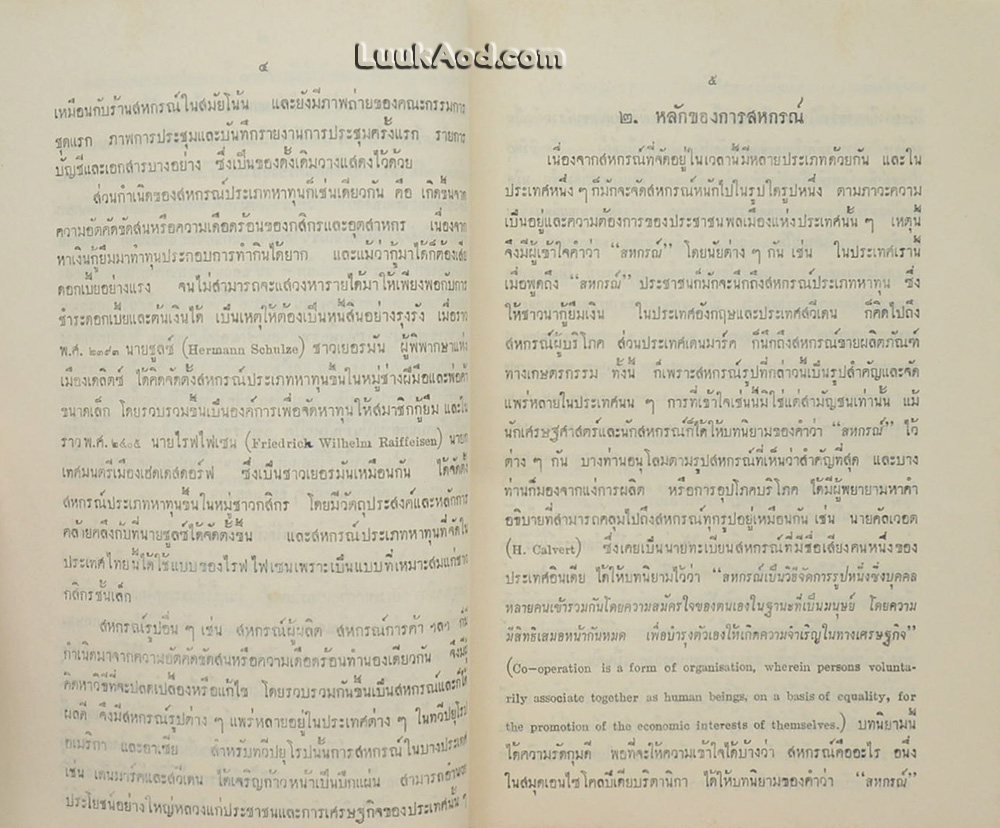 LuukAod.com
๔
เหมือนกับร้านสหกรณ์ในสมัยโน้น และยังมีภาพถ่ายของคณะกรรมการ
ชุดแรก ภาพการประชุมและบันทึกรายงานการประชุมครั้งแรก รายการ
บัญชีและเอกสารบางอย่าง ซึ่งเป็นของดั้งเดิมวางแสดงไว้ด้วย
ส่วนกำเนิดของสหกรณ์ประเภทหาทุนก็เช่นเดียวกัน คือ เกิดขึ้นจาก
ความอัตคัดขัดสนหรือความเดือดร้อนของกสิกรและอุตสาหกร เนื่องจาก
หาเงินกู้ยืมมาทำทุนประกอบการทำกินได้ยาก และแม้ว่ากู้มาได้ก็ต้องเสีย
ดอกเบี้ยอย่างแรง จนไม่สามารถจะแสวงหารายได้มาให้เพียงพอกับการ
ชำระดอกเบี้ยและต้นเงินได้ เป็นเหตุให้ต้องเป็นหนี้สินอย่างรุงรัง เมื่อราว
พ.ศ. ๒๓๙๓ นายชูลซ์ (Hermann Schulze) ชาวเยอรมัน ผู้พิพากษาแห่ง
เมืองเดลิตซ์ ได้คิดจัดตั้งสหกรณ์ประเภทหาทุนขึ้นในหมู่ช่างฝีมือและพ่อค้า
ขนาดเล็ก โดยรวบรวมขึ้นเป็นองค์การเพื่อจัดหาทุนให้สมาชิกกู้ยืม และใน
ราว พ.ศ. ๒๔๐๕ นายไรฟไฟเซน (Friedrick Wilhelm Raiffeisen) นายก
เทศมนตรีเมืองเฮดเดสดอร์ฟ ซึ่งเป็นชาวเยอรมันเหมือนกัน ได้จัดตั้ง
สหกรณ์ประเภทหาทุนขึ้นในหมู่ชาวกสิกร โดยมีวัตถุประสงค์และหลักการ
คล้ายคลึงกับที่นายชูลซ์ได้จัดตั้งขึ้น และสหกรณ์ประเภทหาทุนที่จัดใน
ประเทศไทยนี้ได้ใช้แบบของไรฟไฟเซนเพราะเป็นแบบที่เหมาะสมแก่ชาว
กสิกรชั้นเล็ก
สหกรณ์รูปอื่น ๆ เช่น สหกรณ์ผู้ผลิต สหกรณ์การค้า ฯลฯ ก็มี
กำเนิดมาจากความอัตคัดขัดสนหรือความเดือดร้อนทำนองเดียวกัน จึงมีผู้
คิดหาวิธีที่จะปลดเปลื้องหรือแก้ไข โดยรวบรวมกันขึ้นเป็นสหกรณ์และก็ได้
ผลดี จึงมีสหกรณ์รูปต่าง ๆ แพร่หลายอยู่ในประเทศต่าง ๆ ในทวีปยุโรป
อเมริกา และอาเซีย สำหรับทวีปยุโรปนั้นการสหกรณ์ในบางประเทศ
เช่น เดนมาร์คและสวีเดน ได้เจริญก้าวหน้าเป็นปึกแผ่น สามารถอำนวย
ประโยชน์อย่างใหญ่หลวงแก่ประชาชนและการเศรษฐกิจของประเทศนั้น ๆ
๕
๒. หลักของการสหกรณ์
เนื่องจากสหกรณ์ที่จัดอยู่ในเวลานี้มีหลายประเภทด้วยกัน และใน
ประเทศหนึ่ง ๆ ก็มักจะจัดสหกรณ์หนักไปในรูปใดรูปหนึ่ง ตามภาวะความ
เป็นอยู่และความต้องการของประชาชนพลเมืองแห่งประเทศนั้น ๆ เหตุนี้
จึงมีผู้เข้าใจคำว่า “สหกรณ์” โดยนัยต่าง ๆ กัน เช่น ในประเทศเรานี้
เมื่อพูดถึง “สหกรณ์” ประชาชนก็มักจะนึกถึงสหกรณ์ประเภทหาทุน ซึ่ง
ให้ชาวนากู้ยืมเงิน ในประเทศอังกฤษและประเทศสวีเดน ก็คิดไปถึง
สหกรณ์ผู้บริโภค ส่วนประเทศเดนมาร์ค ก็นึกถึงสหกรณ์ขายผลิตภัณฑ์
ทางเกษตรกรรม ทั้งนี้ ก็เพราะสหกรณ์รูปที่กล่าวนี้เป็นรูปสำคัญและจัด
แพร่หลายในประเทศนั้น ๆ การที่เข้าใจเช่นนี้มิใช่แต่สามัญชนเท่านั้น แม้
นักเศรษฐศาสตร์และนักสหกรณ์ก็ได้ให้บทนิยามของคำว่า “สหกรณ์” ไว้
ต่าง ๆ กัน บางท่านอนุโลมตามรูปสหกรณ์ที่เห็นว่าสำคัญที่สุด และบาง
ท่านก็มองจากแง่การผลิต หรือการอุปโภคบริโภค ได้มีผู้พยายามหาคำ
อธิบายที่สามารถคลุมไปถึงสหกรณ์ทุกรูปอยู่เหมือนกัน เช่น นายคัลเวอต
(H. Calvert) ซึ่งเคยเป็นนายทะเบียนสหกรณ์ที่มีชื่อเสียงคนหนึ่งของ
ประเทศอินเดีย ได้ให้บทนิยามไว้ว่า “สหกรณ์เป็นวิธีจัดการรูปหนึ่งซึ่งบุคคล
หลายคนเข้าร่วมกันโดยความสมัครใจของตนเองในฐานะที่เป็นมนุษย์ โดยความ
มีสิทธิเสมอหน้ากันหมด เพื่อบำรุงตัวเองให้เกิดความจำเริญในทางเศรษฐกิจ”
(Co-operation is a form of organisation, wherein persons volunta-
rily associate together as human beings, on a basis of equality, for
the promotion of the economic interests of themselves.) บทนิยามนี้
ได้ความรัดกุมดี พอที่จะให้ความเข้าใจได้บ้างว่า สหกรณ์คืออะไร อนึ่ง
ในสมุดเอนไซโคลปีเดียบริตานิกา ได้ให้บทนิยามของคำว่า “สหกรณ์”